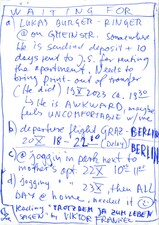 WAITING FOR
a) LUKAS BURGER-RINGER
@ on GMEINSTR. somewhere
He is sending deposit + 10
days rent to J.S. for renting
the apartment. Needs to
bring print-out of transfer
(He did) 13 X 2023 ca. 1930
→ He is AWKWARD, maybe
feels UNCOMFORTABLE w/ me
b) departure flight GRAZ - BERLIN
20 X 18 - 22 (Delay) BERLIN
c) @ jogging in park next to
mother's apt. 22 X 10
d) jogging 23 X, then ALL
DAY @ home, needed it
reading "TROTZDEM JA ZUM LEBEN
SAGEN" by VIKTOR FRANKEL